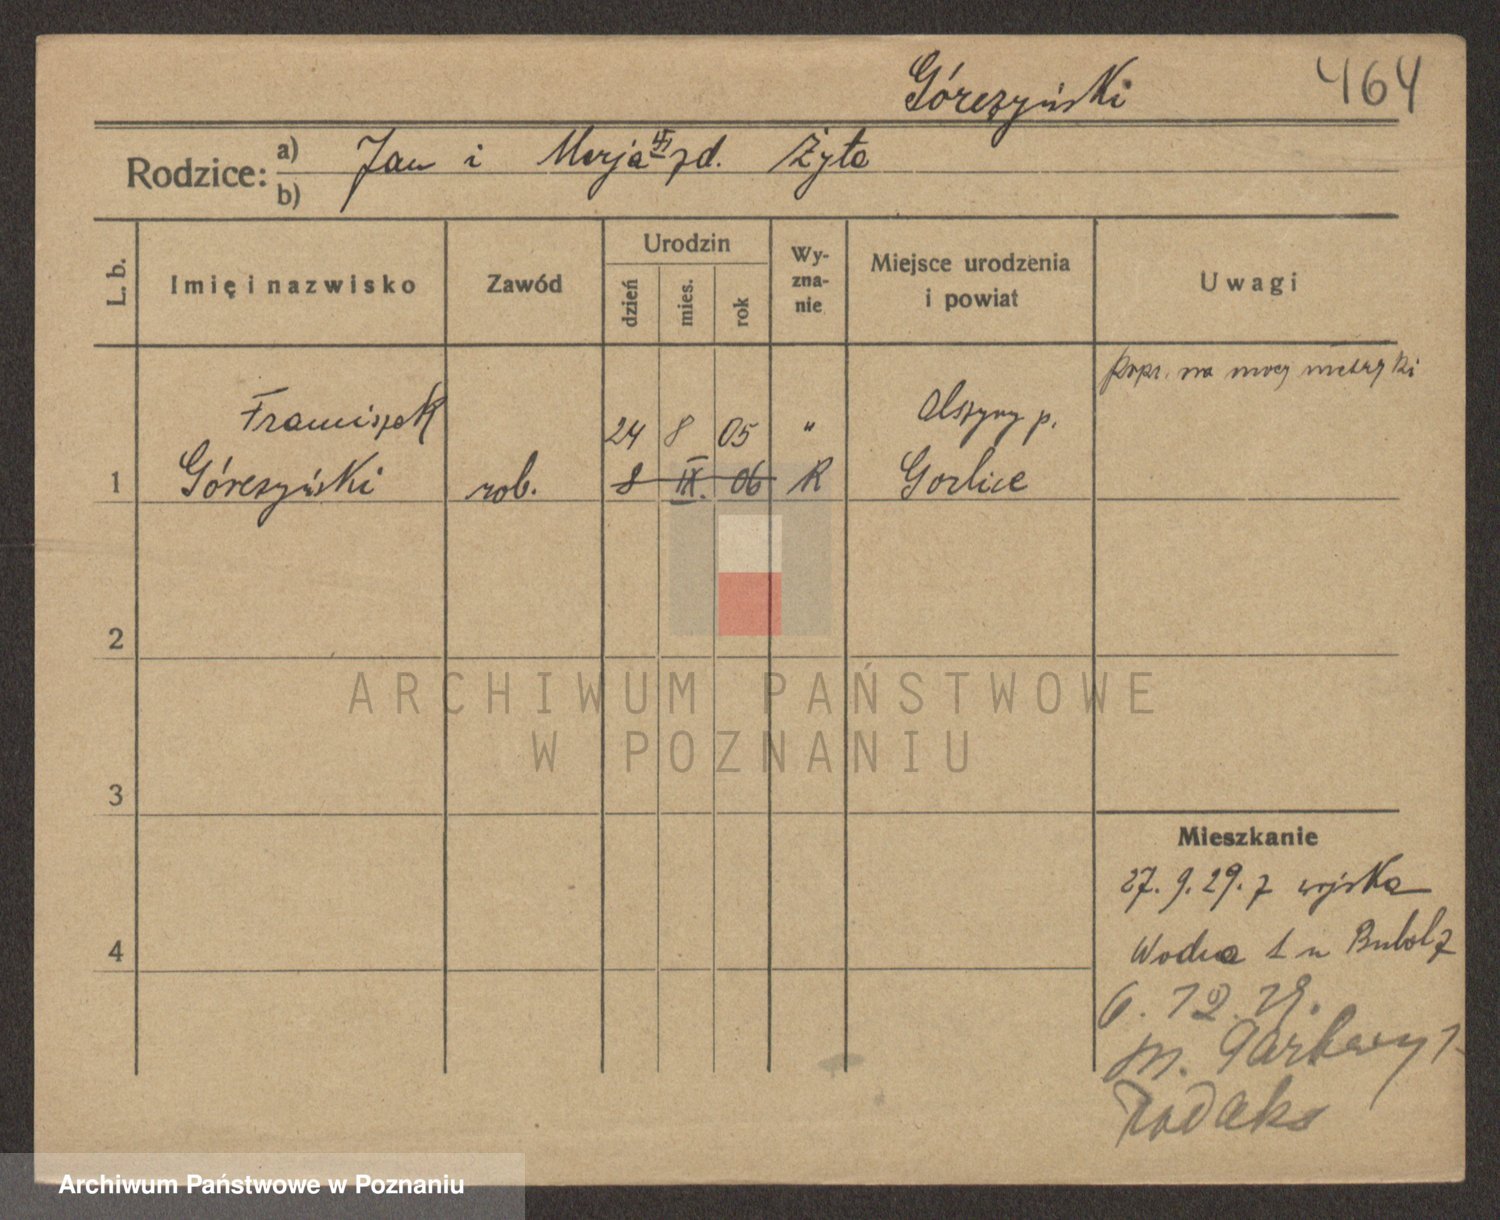 Góreszyński 464
Rodzice: a) Jan i Marja zd. Żyła
b)
L. b. Imię i nazwisko Zawód Urodzin dzień mies. rok Wy-zna-nie Miejsce urodzenia i powiat Uwagi
popr. na mocy metryki
Franciszek 24 8 05 " Olszyny p.
1 Góreszyński rob. 8 IX. 06 R Gorlice
2
ARCHIWUM PAŃSTWOWE
W POZNANIU
3
Mieszkanie
27. 9. 29. z wojska
4 Wodna 1 u Bubolz
6. 12. 29.
m. Garbary
Archiwum Państwowe w Poznaniu